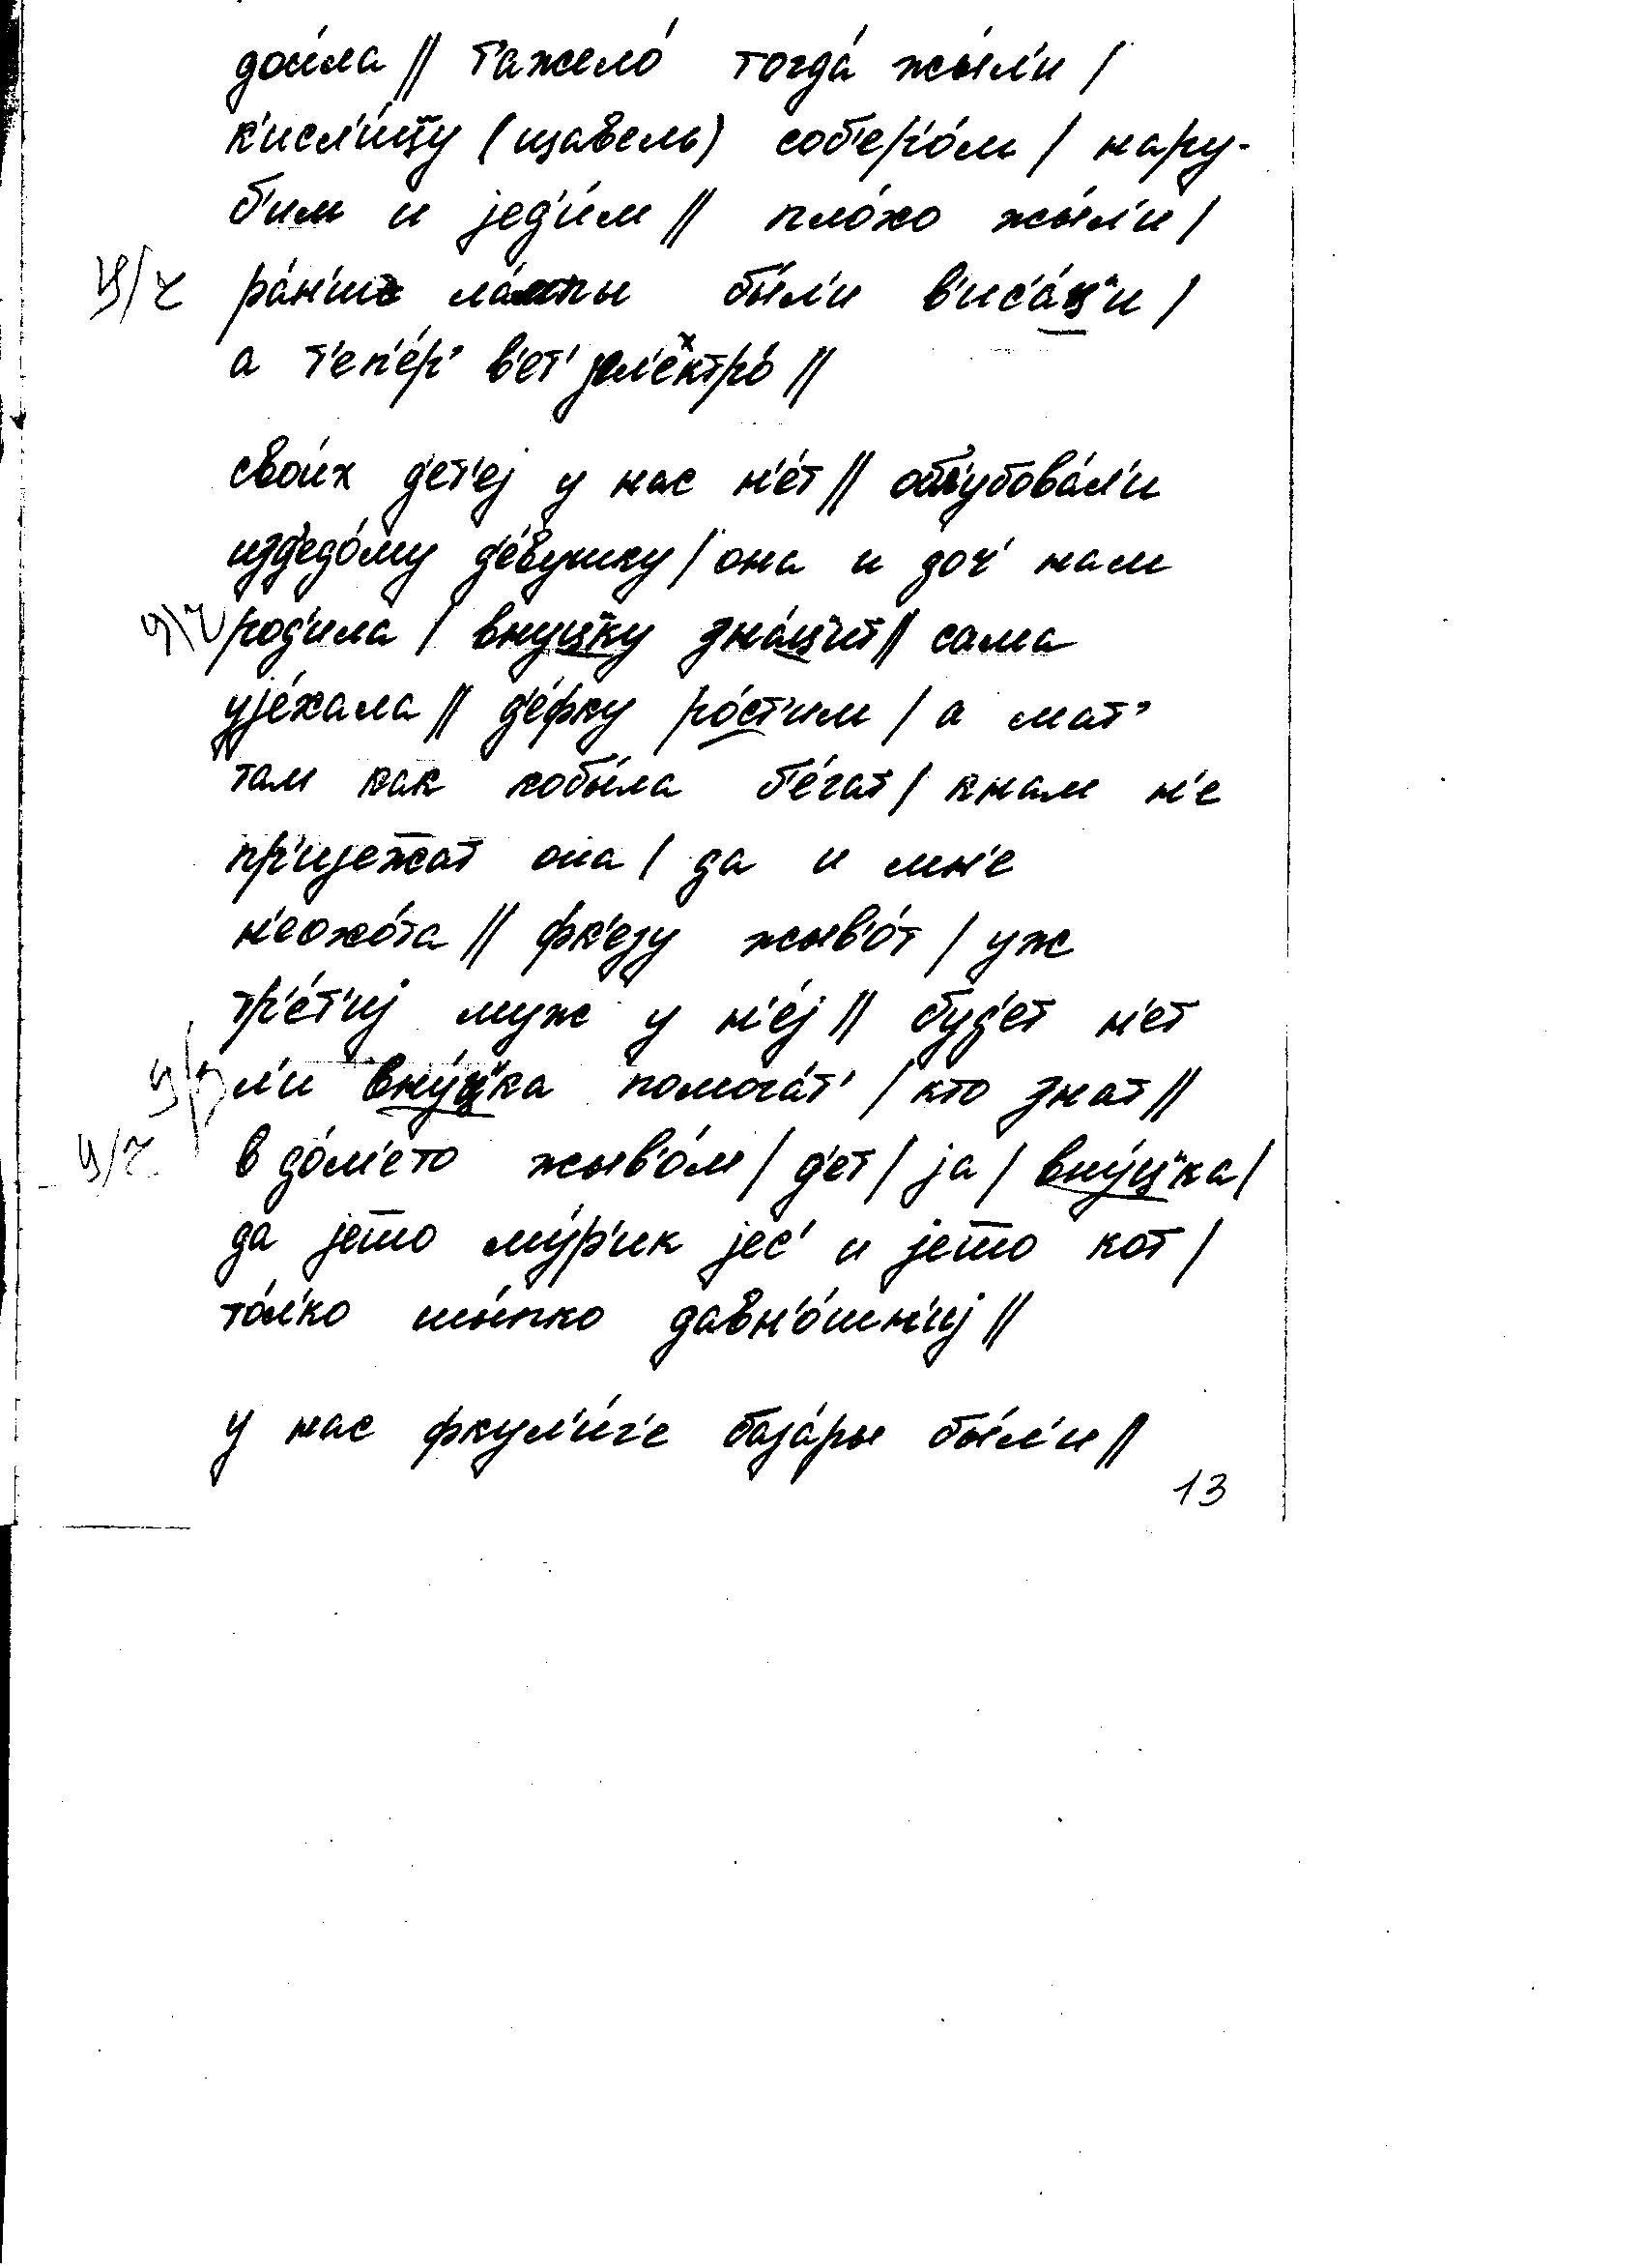 дои́ла // т'ажело́ тогда́ жы́л'и /
к'исл'и́цу (щавель) соб'ер'о́м / нару-
б'им и jед'и́м // пло́хо жы́л'и /
ц/ч ра́н'ше ла́мпы бы́л'и в'ис'а́ц"и /
а т'еп'е́р' в'ет' jел'е́хтро́ //
свои́х д'ет'еj у нас н'е́т // обл'убова́л'и
изд'едо́му д'е́вушку / она и доч' нам
ц/ч род'ила / внуц"ку зна́ц"ит // сама
уjе́хала // д'е́фку ро́ст'им / а мат'
там как кобы́ла б'е́гат / кнам н'е
пр'иjежат она / да и мн'е
н'еохо́та // фк'езу жыв'о́т / уж
тр'е́т'иj муж у н'е́j // буд'ет н'ет
ц/ч л'и вну́ц"ка помога́т' / кто знат //
ц/ч в до́м'ето жыв'о́м / д'ет / jа / вну́ц"ка /
да jешо му́р'ик jес' и jешо кот /
то́л'ко шы́пко давн'о́шн'иj //
у нас фкул'и́г'е база́ры бы́л'и //
13